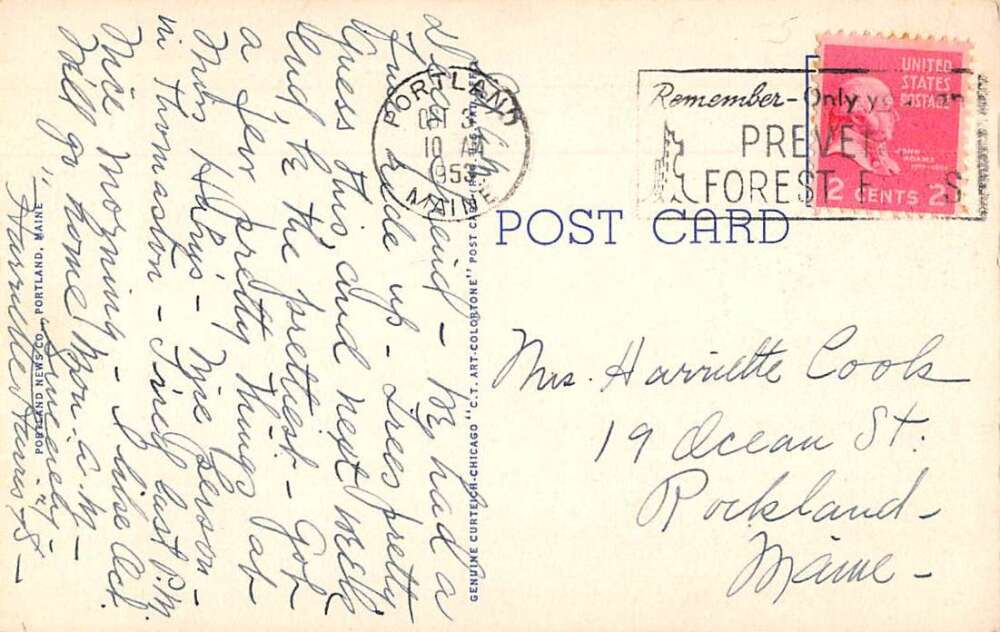 Dear Friend -
We had a
fine ride up - Trees pretty
Guess this, and next week
End, be the prettiest - Got
a few pretty things at
Miss Halry's - Nice person -
in Thomaston - Fined last P.M
Nice Morning - I like Oct.
Will go home Mon. A.M -
"Sincerely"
"Harriette Harris -
PORTLAND NEWS CO., PORTLAND, MAINE
GENUINE CURTEICH-CHICAGO "C.T. ART-COLORTONE" POST CARD
PORTLAND
OCT 3
10 AM
1953
MAINE
Remember - Only you can
PREVENT
FOREST FIRES
UNITED
STATES
POSTAGE
JOHN
ADAMS
2 CENTS 2
POST CARD
Mrs. Harriette Cook
19 Ocean St.
Rockland -
Maine -